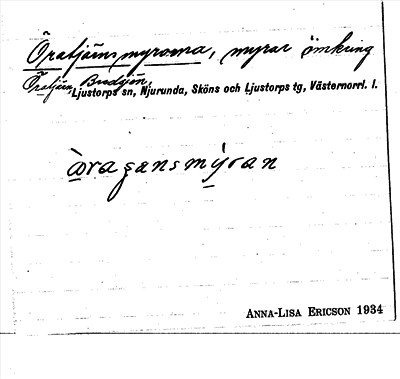 Öratjärnsmyrorna, myrar omkring
Öratjärn, Brudsjön,
Ljustorps sn, Njurunda, Sköns och Ljustorps tg, Västernorrl. l.
ANNA-LISA ERICSON 1934